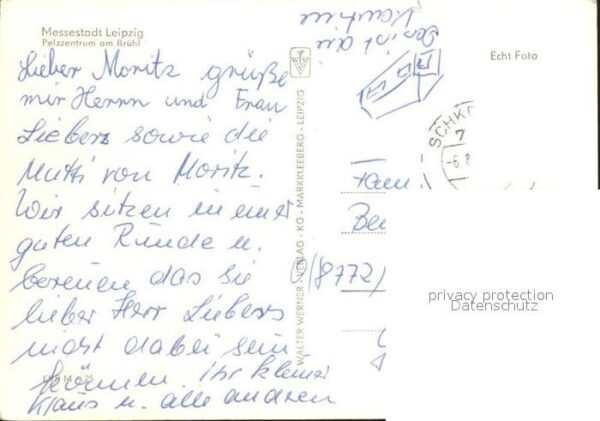 Messestadt Leipzig
Pelzzentrum am Brühl
Lieber Moritz grüße
mir Herrn und Frau
Liebers sowie die
Mutti von Moritz.
Wir sitzen in einer
guten Runde u.
bereuen das sie
lieber Herr Liebers
nicht dabei sein
können. Ihr kleiner
Klaus u. alle anderen
M 25
WALTER WERNER - VERLAG - KG - MARKKLEEBERG - LEIPZIG
Das ist die
Echt Foto
SCHK
7
-6.8
Fam
Be
(8772)
privacy protection
Datenschutz